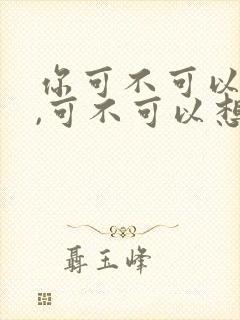 你可不可以
,可不可以想
聂玉峰